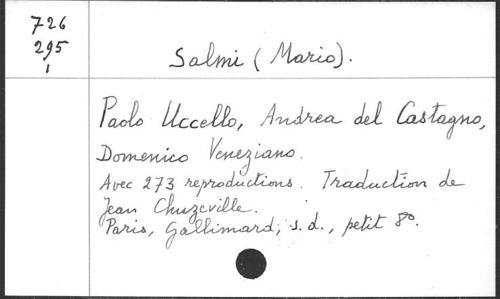 726
295
1
Salmi (Mario).
Paolo Uccello, Andrea del Castagno,
Domenico Veneziano.
Avec 273 reproductions. Traduction de
Jean Chuzeville.
Paris, Gallimard, s.d., petit 8º.